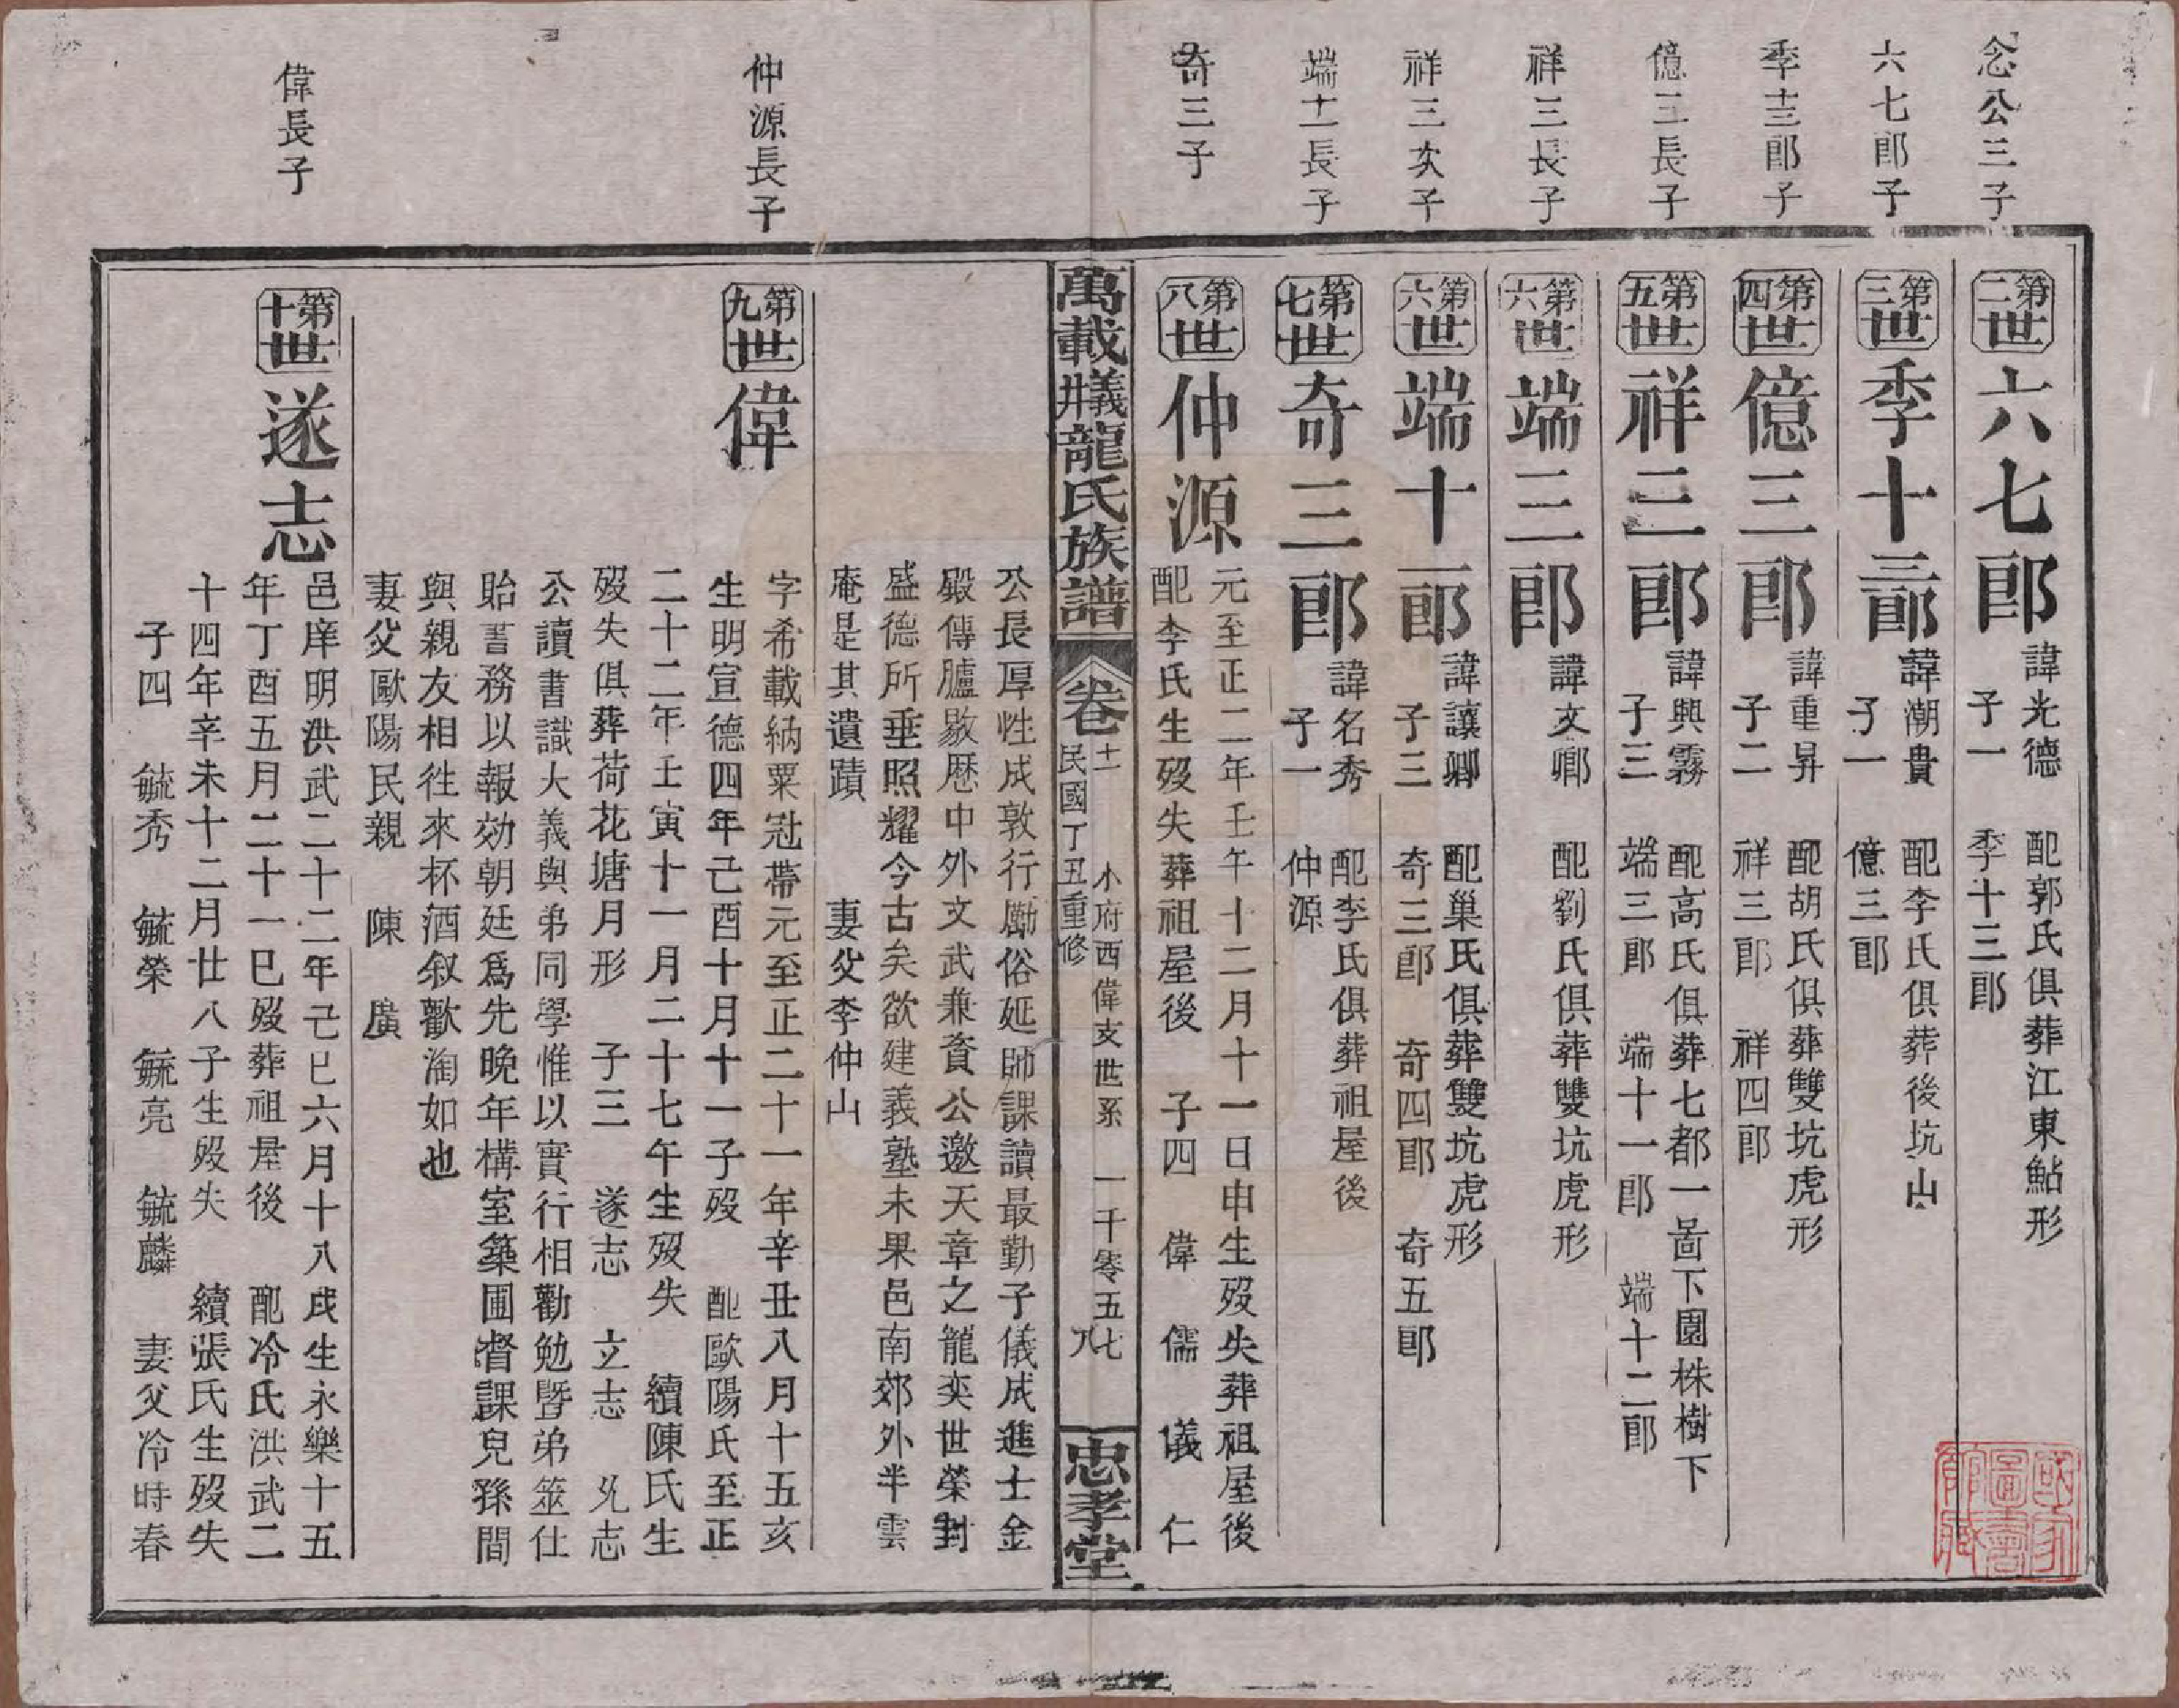 念公三子
第二世
六七郎
諱光德　配郭氏俱葬江東鮎形
子一　季十三郎
六七郎子
第三世
季十三郎
諱潮貴　配李氏俱葬後坑山
子一　億三郎
季十三郎子
第四世
億三郎
諱重昇　配胡氏俱葬雙坑虎形
子二　祥三郎　祥四郎
億三長子
第五世
祥三郎
諱興霧　配高氏俱葬七都一啚下園株樹下
子三　端三郎　端十一郎　端十二郎
祥三長子
第六世
端三郎
諱文卿　配劉氏俱葬雙坑虎形
祥三次子
第六世
端十一郎
諱讓卿　配巢氏俱葬雙坑虎形
子三　奇三郎　奇四郎　奇五郎
端十一長子
第七世
奇三郎
諱名秀　配李氏俱葬祖屋後
子一　仲源
奇三子
第八世
仲源
元至正二年壬午十二月十一日申生歿失葬祖屋後
配李氏生歿失葬祖屋後　子四　偉　儒　儀　仁
萬載井義龍氏族譜
卷十一
小府西偉支世系　一千零五七
民國丁丑重修　八
忠孝堂
公長厚性成敦行勵俗延師課讀最勤子儀成進士金
殿傳臚敭歷中外文武兼資公邀天章之龍奕世榮封
盛德所垂照耀今古矣欲建義塾未果邑南郊外半雲
庵是其遺蹟　妻父李仲山
仲源長子
第九世
偉
字希載納粟冠帶元至正二十一年辛丑八月十五亥
生明宣德四年己酉十月十一子歿　配歐陽氏至正
二十二年壬寅十一月二十七午生歿失　續陳氏生
歿失俱葬荷花塘月形　子三　遂志　立志　允志
公讀書識大義與弟同學惟以實行相勸勉暨弟筮仕
貽書務以報効朝廷爲先晚年構室築圃督課兒孫間
與親友相往來杯酒叙歡淘如也
妻父歐陽民親　陳　廣
偉長子
第十世
遂志
邑庠明洪武二十二年己巳六月十八戌生永樂十五
年丁酉五月二十一巳歿葬祖屋後　配冷氏洪武二
十四年辛未十二月廿八子生歿失　續張氏生歿失
子四　毓秀　毓榮　毓亮　毓麟　妻父冷時春
國家圖書館藏